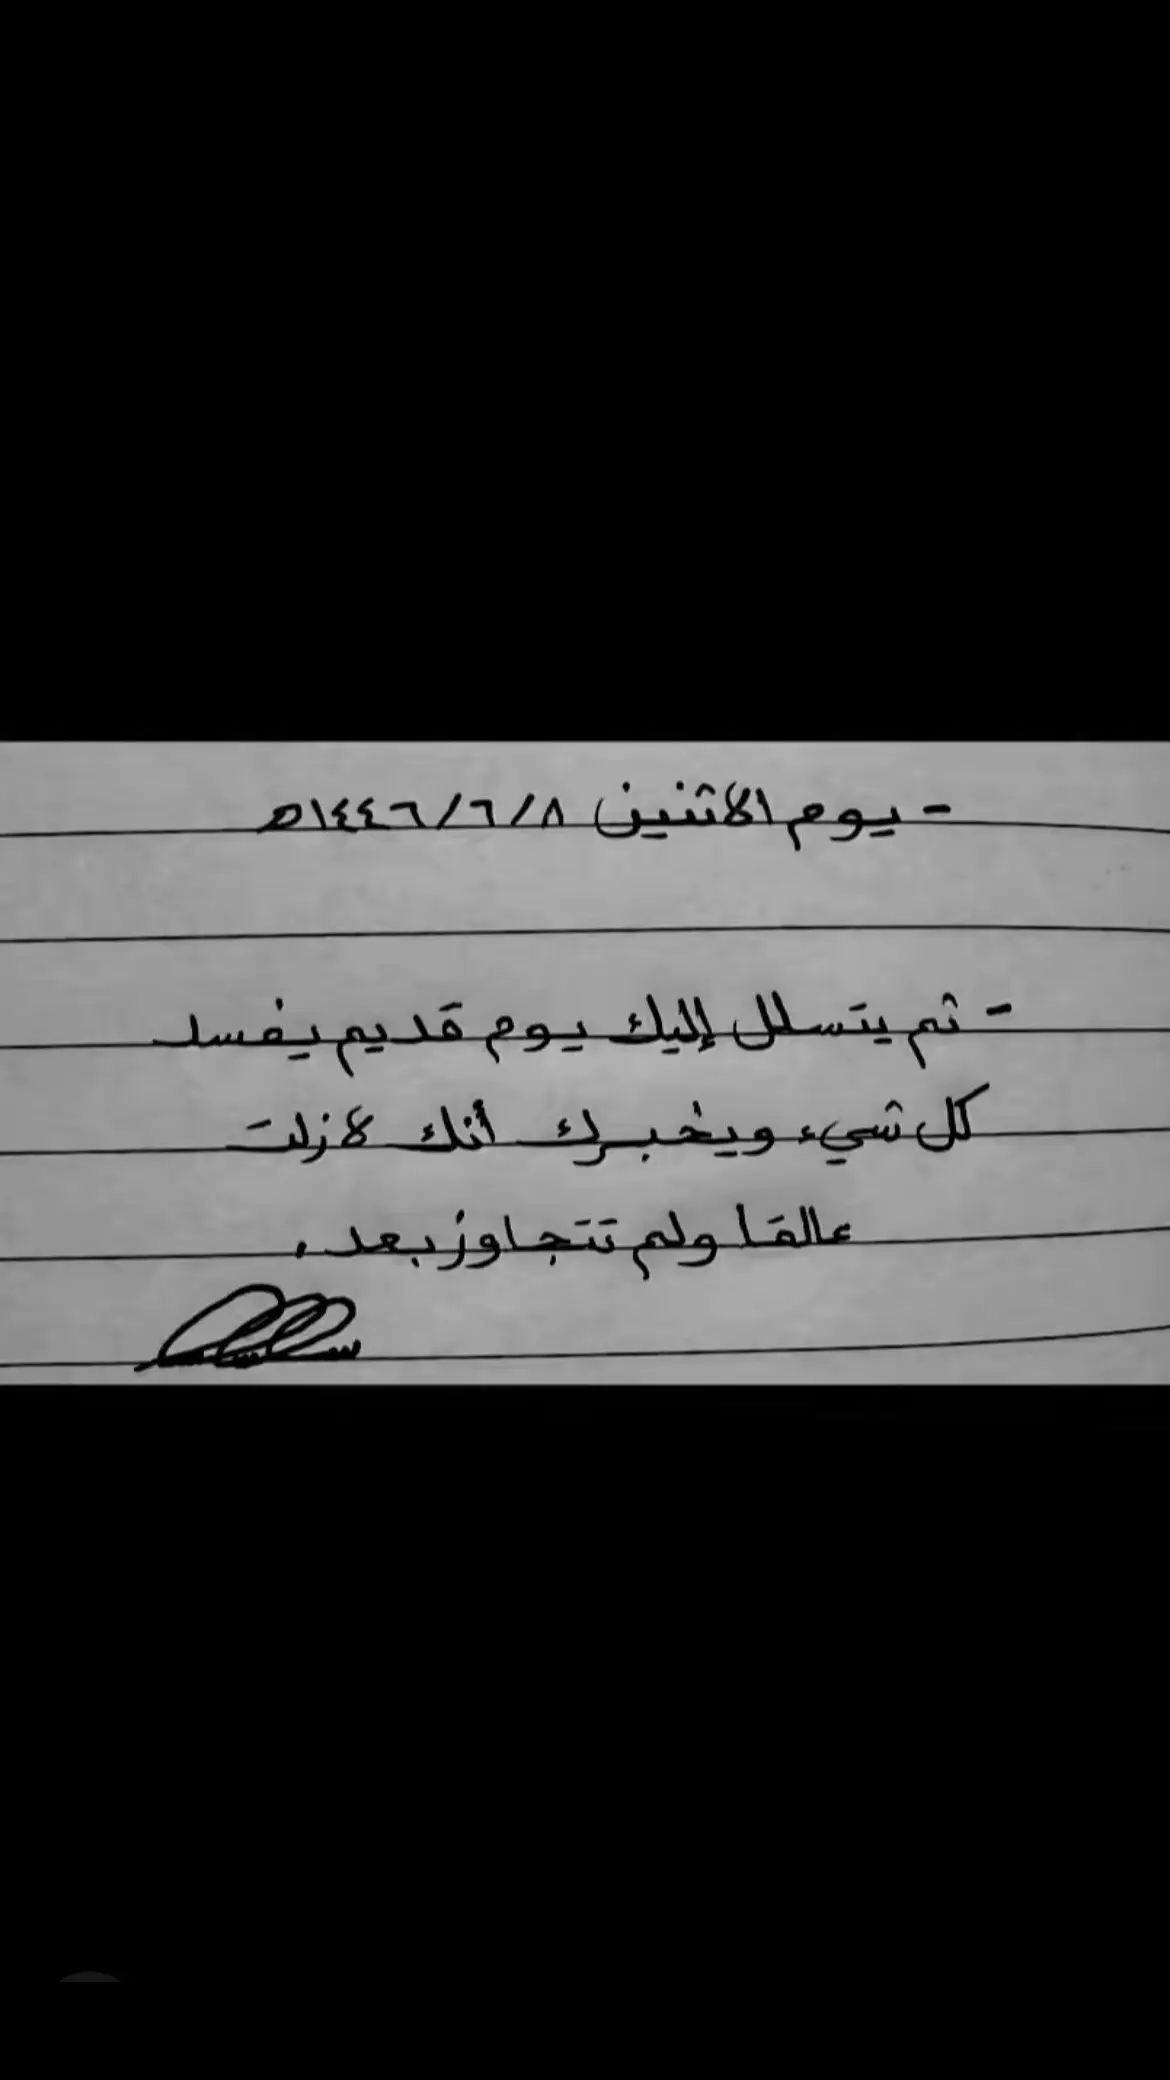 - يوم الاثنين ١٤٤٦/٦/٨هـ
- ثم يتسلل إليك يوم قديم يفسد
كل شيء ويخبرك أنك لازلت
عالقا ولم تتجاوز بعد.